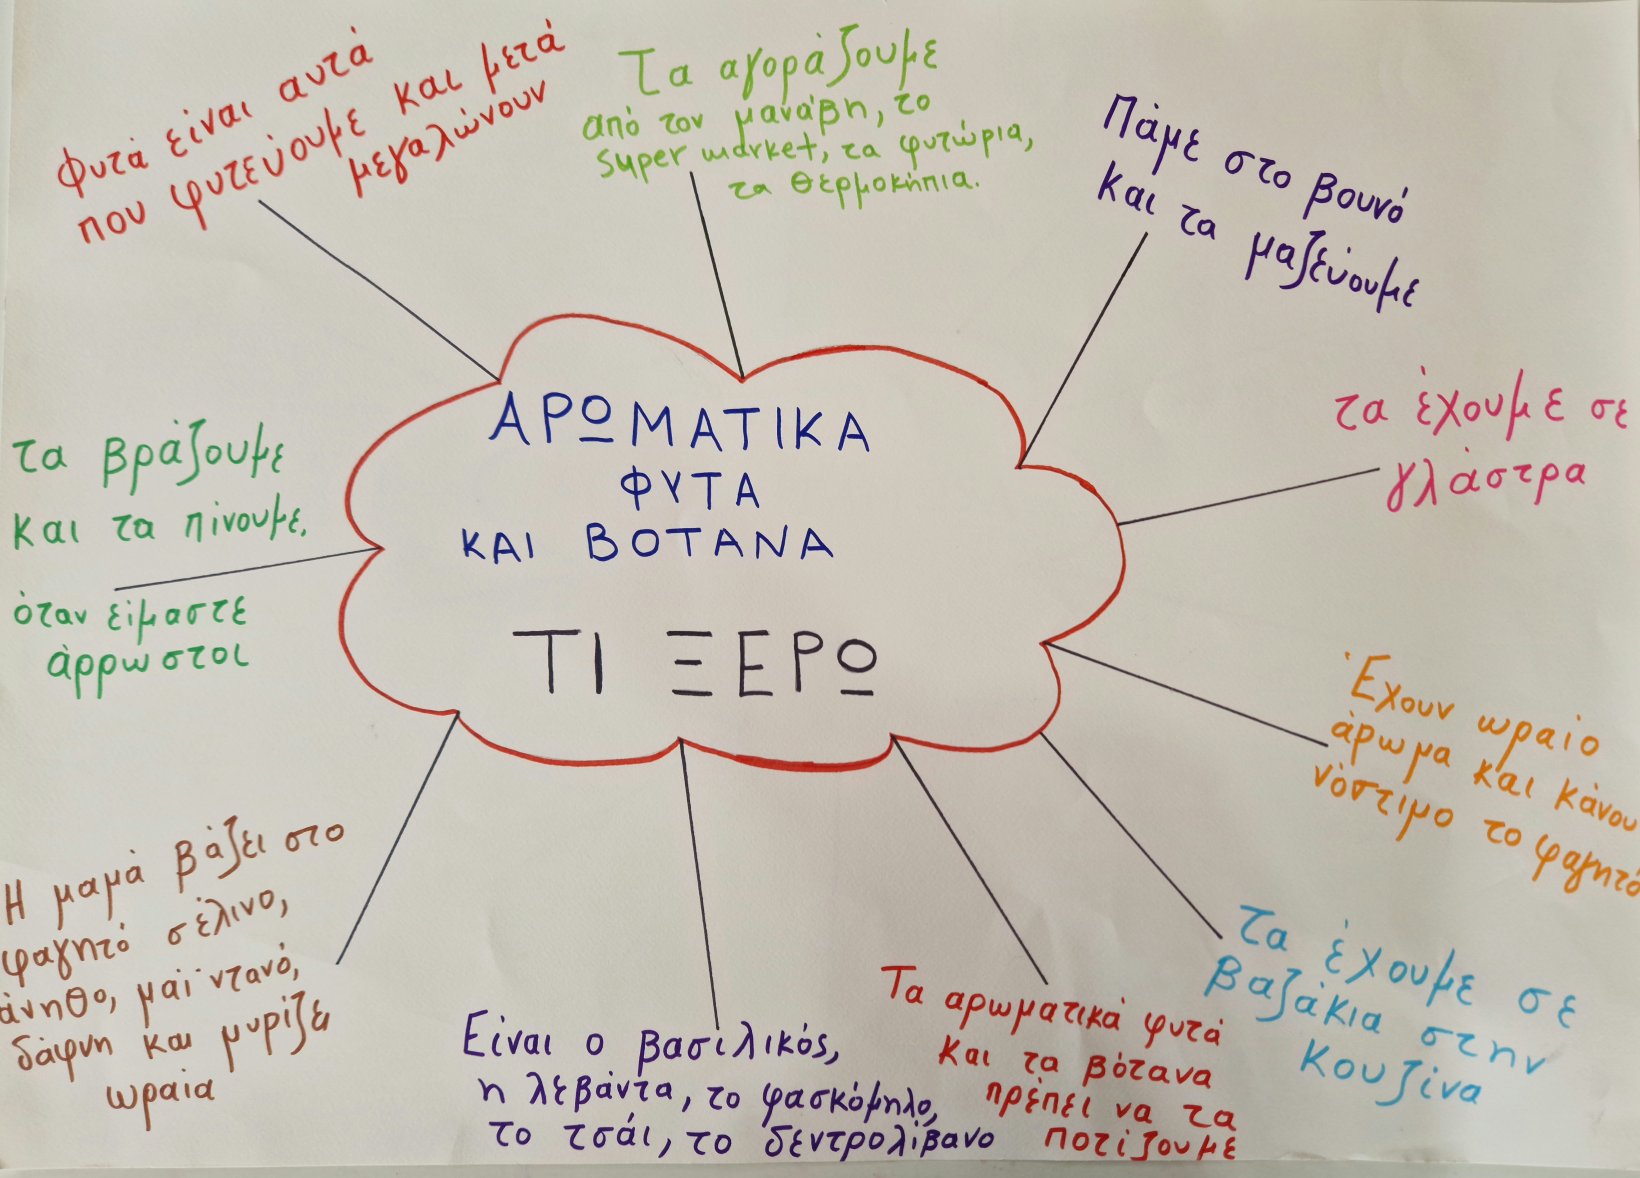 Φυτά είναι αυτά
που φυτεύουμε και μετά
μεγαλώνουν
Τα αγοράζουμε
από τον μανάβη, το
super market, τα φυτώρια,
τα θερμοκήπια.
Πάμε στο βουνό
και τα μαζεύουμε
τα έχουμε σε
γλάστρα
Έχουν ωραίο
άρωμα και κάνου
νόστιμο το φαγητό
Τα έχουμε σε
βαζάκια στην
κουζίνα
Τα αρωματικά φυτά
και τα βότανα
πρέπει να τα
ποτίζουμε
Είναι ο βασιλικός,
η λεβάντα, το φασκόμηλο,
το τσάι, το δεντρολίβανο
Η μαμά βάζει στο
φαγητό σέλινο,
άνηθο, μαϊντανό,
δάφνη και μυρίζει
ωραία
τα βράζουμε
και τα πίνουμε,
όταν είμαστε
άρρωστοι
ΑΡΩΜΑΤΙΚΑ
ΦΥΤΑ
ΚΑΙ ΒΟΤΑΝΑ
ΤΙ ΞΕΡΩ